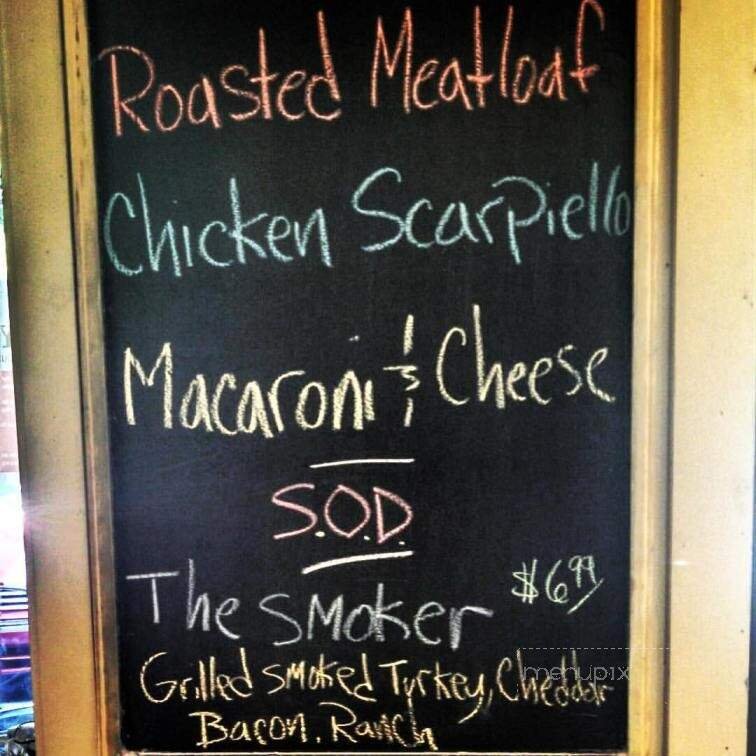 Roasted Meatloaf
Chicken Scarpiello
Macaroni & Cheese
S.O.D.
The Smoker $6.99
Grilled Smoked Turkey, Cheddar
Bacon, Ranch
menupix